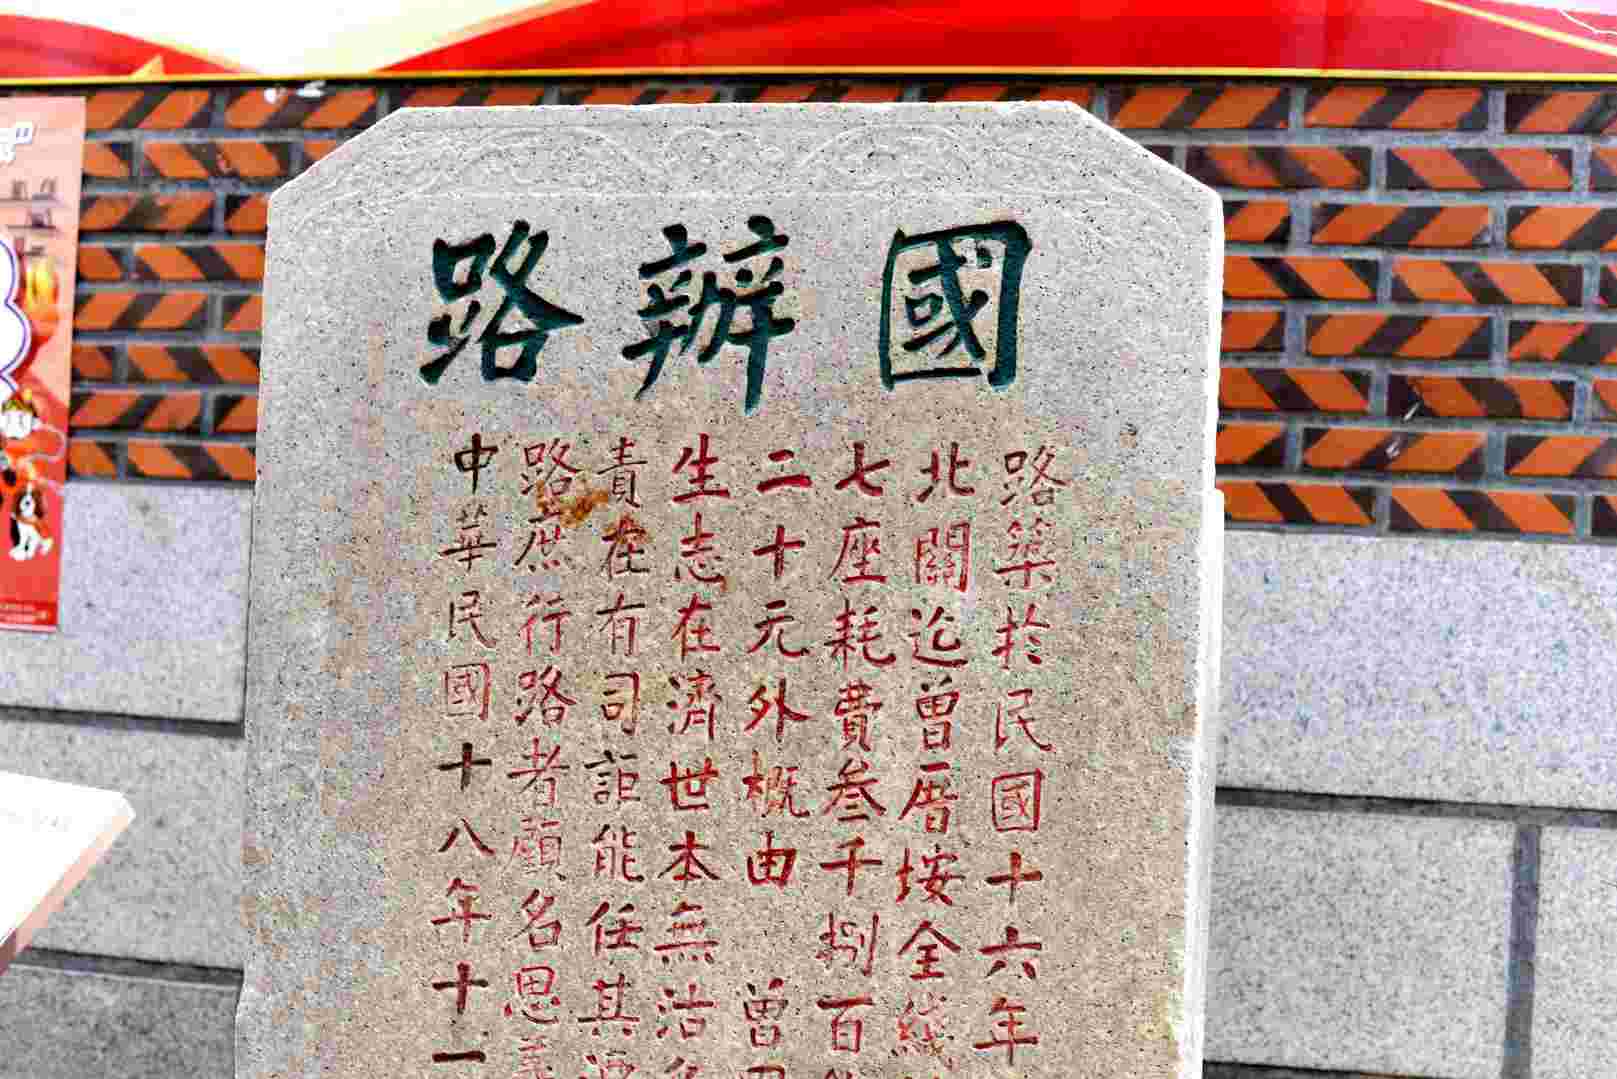 國辦路
路築於民國十六年
北關迄曾厝垵全綫
七座耗費叁千捌百
二十元外概由 曾國
生志在濟世本無沽
責在有司詎能任其湮
路庶行路者顧名思義
中華民國十八年十一